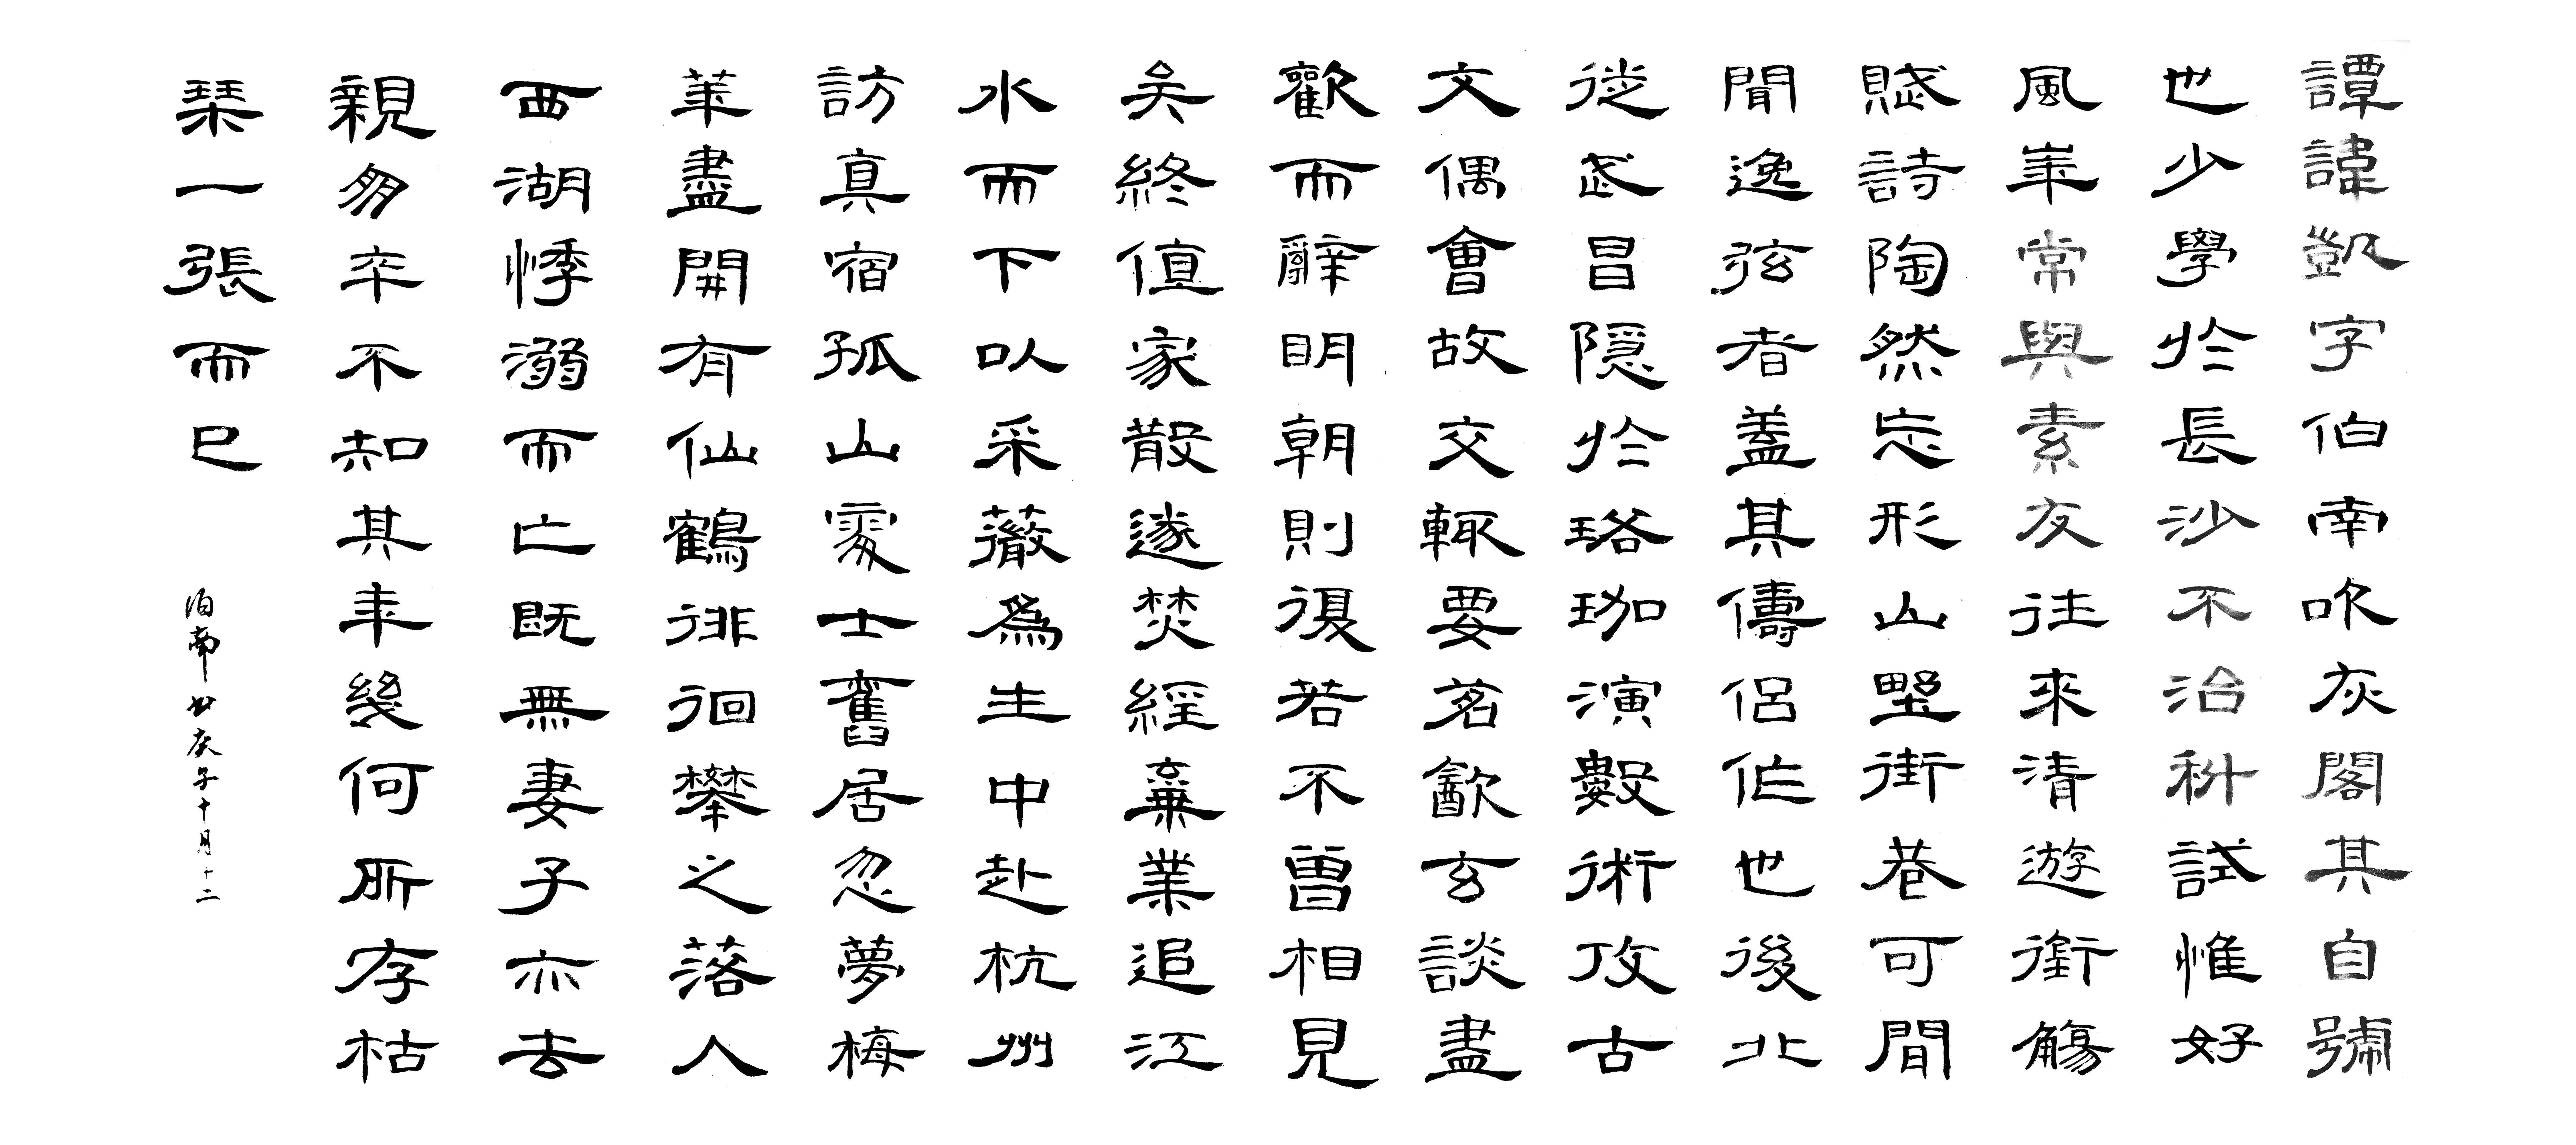 譚諱凱字伯南吹灰閣其自號
也少學於長沙不治科試惟好
風華常與素友往來清遊銜觴
賦詩陶然忘形山野街巷可閒
閒逸弦者蓋其儔侶作也後北
從武昌隱於珞珈演數術攻古
文偶會故交輒要茗飲玄談盡
歡而辭明朝則復若不曾相見
矣終值家散遂焚經棄業追江
水而下以采薇為生中赴杭州
訪真宿孤山處士舊居忽夢梅
華盡開有仙鶴徘徊攀之落入
西湖悸溺而亡既無妻子亦去
親朋卒不知其年幾何所存枯
琴一張而已
伯南 庚子十月十二